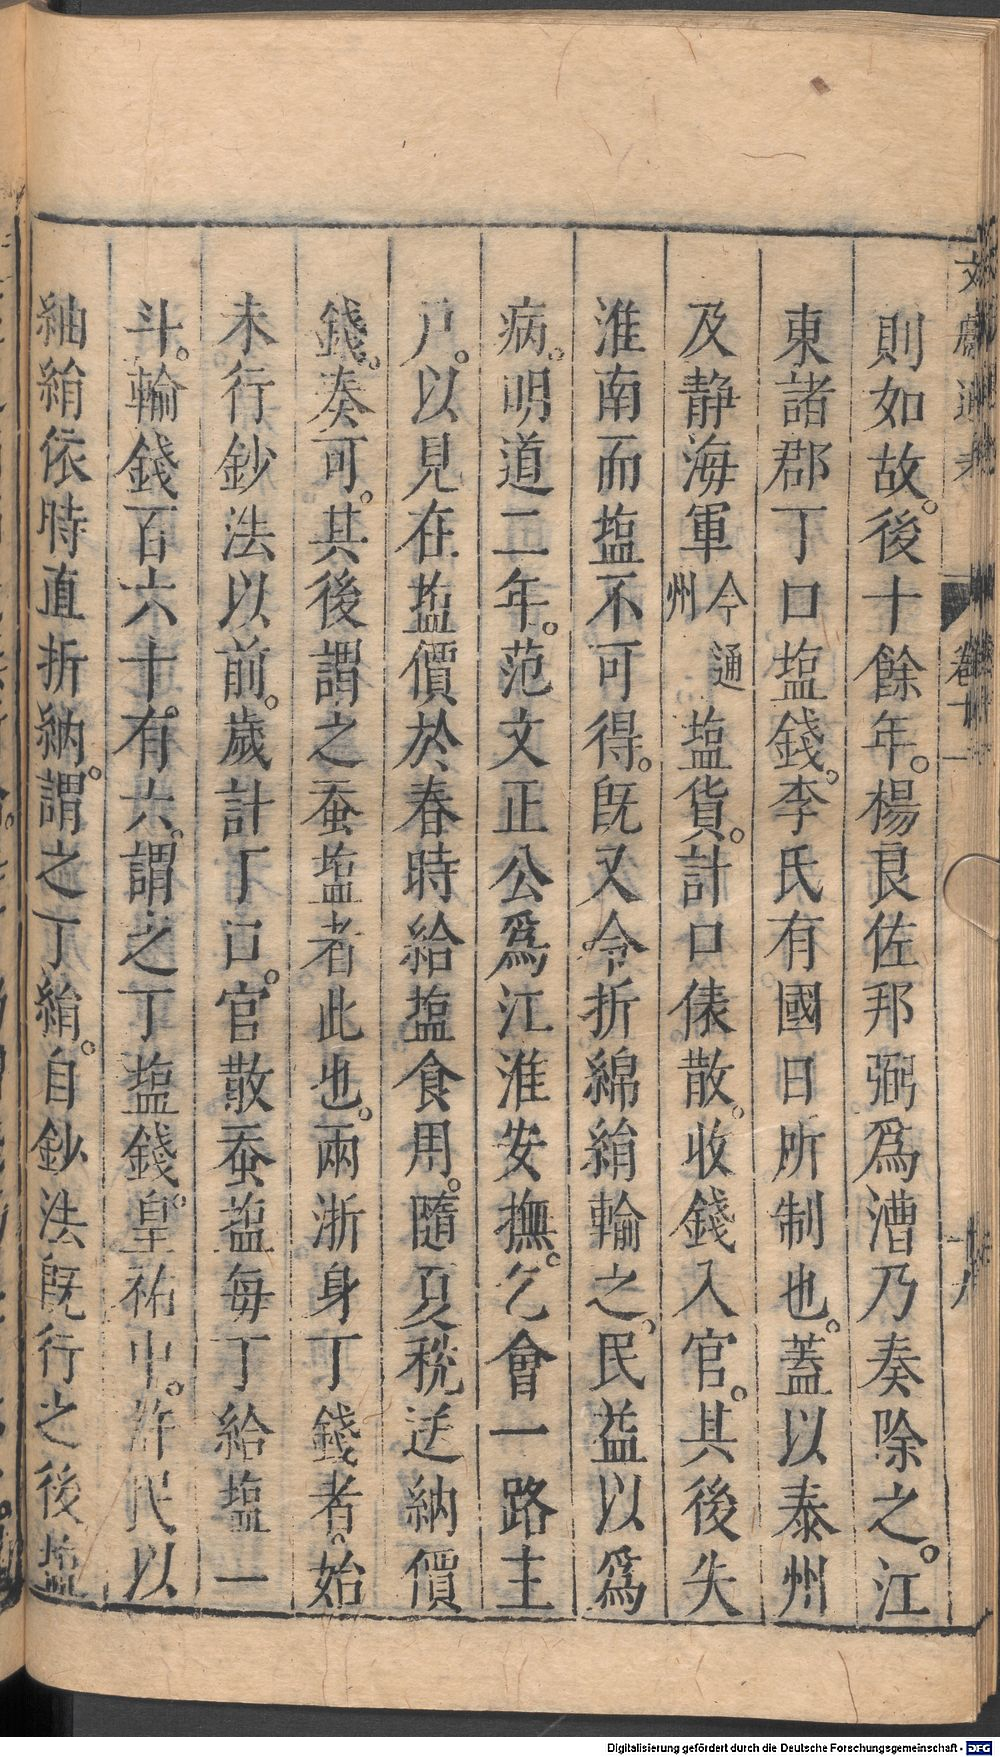 則如故。後十餘年。楊良佐邦弼爲漕乃奏除之。江
東諸郡丁口塩錢。李氏有國日所制也。蓋以泰州
及静海軍今通州塩貨。計口俵散。收錢入官。其後失
淮南而塩不可得。旣又令折綿絹輸之。民益以爲
病。明道二年。范文正公爲江淮安撫。乞會一路主
戸。以見在塩價於春時給塩食用。隨夏稅送納價
錢。奏可。其後謂之蚕塩者此也。兩浙身丁錢者。始
未行鈔法以前。歲計丁口。官散蚕塩每丁給塩一
斗。輸錢百六十。有六。謂之丁塩錢。皇祐中。許民以
紬絹依時直折納。謂之丁絹。自鈔法旣行之後塩
文獻通考
卷十一
十八
Digitalisierung gefördert durch die Deutsche Forschungsgemeinschaft - DFG